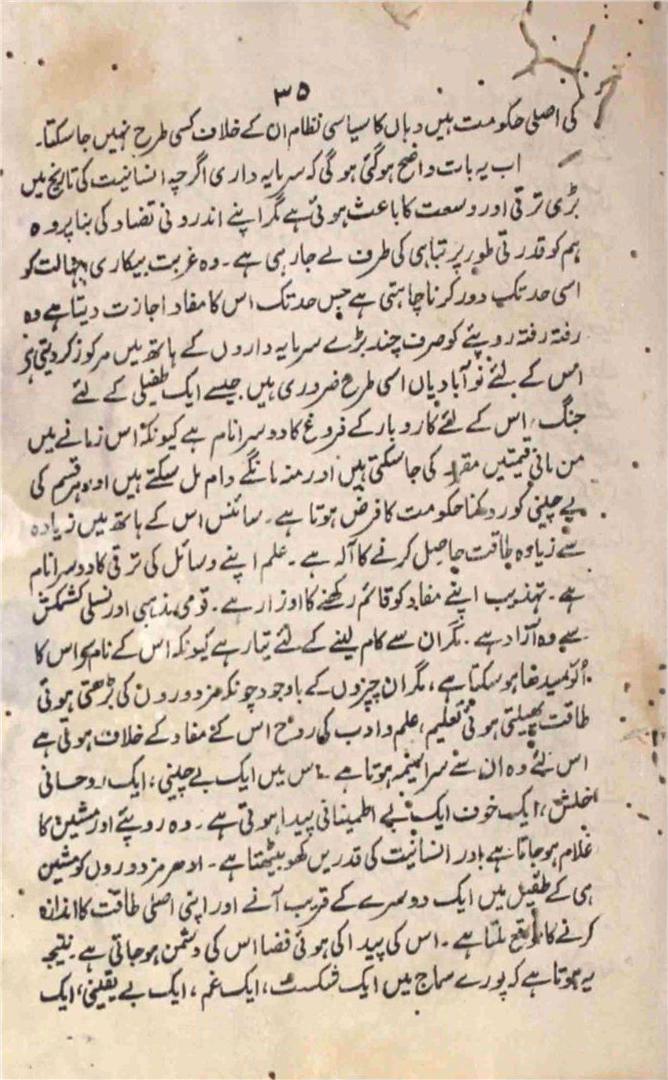 ۳۵
کی اصلی حکومت ہیں وہاں کا سیاسی نظام ان کے خلاف کسی طرح نہیں جا سکتا۔
اب یہ بات واضح ہو گئی ہو گی کہ سرمایہ داری اگرچہ انسانیت کی تاریخ میں
بڑی ترقی اور وسعت کا باعث ہوئی ہے مگر اپنے اندرونی تضاد کی بنا پر وہ
ہم کو قدرتی طور پر تباہی کی طرف لے جا رہی ہے۔ وہ غربت بیکاری جہالت کو
اسی حد تک دور کرنا چاہتی ہے جس حد تک اس کا مفاد اجازت دیتا ہے وہ
رفتہ رفتہ روپئے کو صرف چند بڑے سرمایہ داروں کے ہاتھ میں مرکوز کر دیتی ہے
اس کے لئے نوآبادیاں اسی طرح ضروری ہیں جیسے ایک طفیلی کے لئے
جنگ، اس کے لئے کاروبار کے فروغ کا دوسرا نام ہے کیونکہ اس زمانے میں
من مانی قیمتیں مقرر کی جا سکتی ہیں اور منہ مانگے دام مل سکتے ہیں اور ہر قسم کی
بے چینی کو روکنا حکومت کا فرض ہوتا ہے۔ سائنس اس کے ہاتھ میں زیادہ
سے زیادہ طاقت حاصل کرنے کا آلہ ہے۔ علم اپنے وسائل کی ترقی کا دوسرا نام
ہے۔ تہذیب اپنے مفاد کو قائم رکھنے کا اوزار ہے۔ قومی، مذہبی اور نسلی کشمکش
سے وہ آزاد ہے۔ مگر ان سے کام لینے کے لئے تیار ہے کیونکہ اس کے نام پر اس کا
الو سیدھا ہو سکتا ہے، مگر ان چیزوں کے باوجود چونکہ مزدوروں کی بڑھتی ہوئی
طاقت پھیلتی ہوئی تعلیم، علم و ادب کی روح اس کے مفاد کے خلاف ہوتی ہے
اس لئے وہ ان سے سراسیمہ ہوتا ہے۔ اس میں ایک بے چینی، ایک روحانی
خلش، ایک خوف ایک بے اطمینانی پیدا ہوتی ہے۔ وہ روپئے اور مشین کا
غلام ہو جاتا ہے اور انسانیت کی قدریں کھو بیٹھتا ہے۔ ادھر مزدوروں کو مشین
ہی کے طفیل میں ایک دوسرے کے قریب آنے اور اپنی اصلی طاقت کا اندازہ
کرنے کا موقع ملتا ہے۔ اس کی پیدا کی ہوئی فضا اس کی دشمن ہو جاتی ہے۔ نتیجہ
یہ ہوتا ہے کہ پورے سماج میں ایک شکست، ایک غم، ایک بے یقینی، ایک